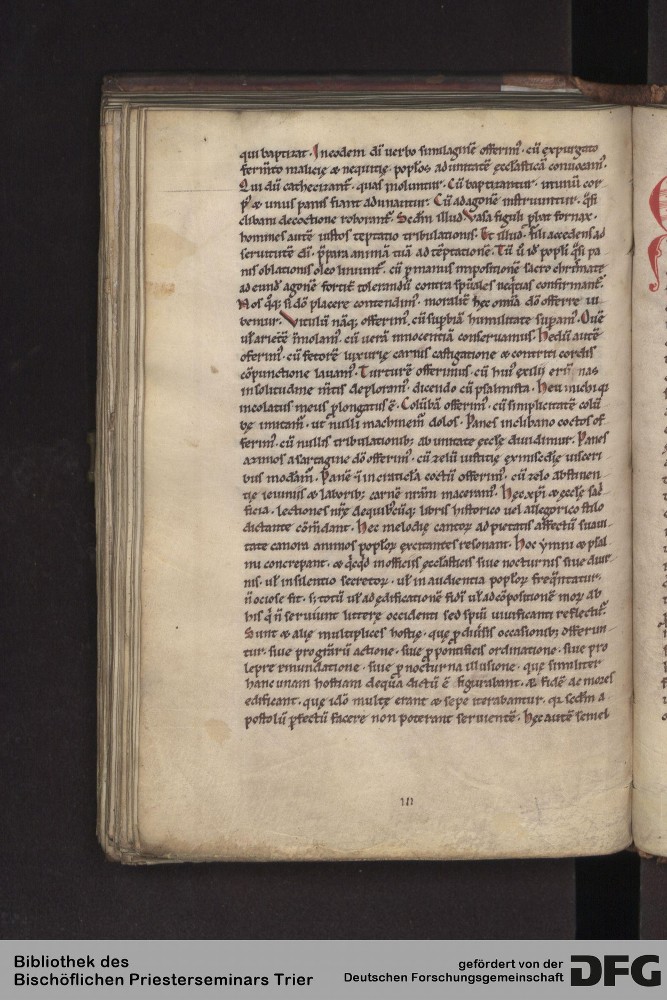 qui baptizat. In eodem dñi verbo similaginē offerim᷒. cū expurgato
fermto malicię & nequitię. poplos ad unitatē ecclasticā convocam᷒.
Qui dū cathecizant᷒. quasi moluntur. Cū baptizantur. in unū cor
p᷒ & unus panis fiant adunantur. Cū ad agonē instruuntur. q̄si
clibani decoctione roborant᷒. Scdm illud. Vasa figuli pbat fornax.
homines autē iustos teptatio tribulationis. Et illud. fili accedens ad
servitutē di. ppara animā tuā ad tēptationē. Tū ū id popli q̄si pa
nis oblationis oleo liniunt᷒. cū p manus impositionē sacro chrismate
ad eund agonē fortit tolerandū contra spuales neq̄tias confirmant᷒.
Nos q̄q; si dō placere contendim᷒. moralit hęc omia dō offerre vi
demur. Vitulū nāq; offerim᷒. cū supbiā humilitate supam᷒. Ouē
ul arietē īmolam᷒. cū verā innocentiā conservamus. Hedū autē
oferim᷒. cū fetorē luxurię carnis castigatione & contriti cordis
cōpunctione lavam᷒. Turturē offerimus. cū hui᷒ exilii erūnas
in solitudine mtis deploram᷒. dicendo cū psalmista. Heu michi q;
incolatus meus plongatus ē. Colūbā offerim᷒. cū simplicitatē colū
bę imitam᷒. ut nulli machinem᷒ dolos. Panes in clibano coctos of
ferim᷒. cū nullis tribulationib; ab unitate ecclę dividimur. Panes
azimos a sartagine dō offerim᷒. cū zelū iustitię ex misc̄dię visceri
bus modam᷒. Panē ī in craticla coctū offerim᷒. cū zelo abstinen
tię ieiuniis & laborib; carnē nrām maceram᷒. Hęc xpi & ecclę sac
ficia. lectiones nrę de quib᷒cūq; libris historico uel allegorico stilo
dictante cōmdant. Hęc melodię cantor ad pietatis affectū suavi
tate canora animos poplor excitantes resonant. Hoc ymni & psal
mi concrepant. & q̄cqd in officiis ecclasticis sive nocturnis sive diur
nis. ul in silentio secretor. ul in audientia poplor freq̄ntatur.
n̄ ociose fit. s; totū ul ad ędificationē fidi ul ad cōpositionē mor ab
his q̄ n̄ serviunt litterę occidenti sed spui vivificanti reflectit᷒.
Sunt & alię multiplices hostię. quę p divsis occasionib; offerun
tur. sive pro gr̄arū actione. sive p pontificis ordinatione. sive pro
lepre emundatione. sive p nocturna illusione. quę similiter
hanc unam hostiam de qua dictū ē figurabant. & fidē ac mores
edificant. quę idō multę erant & sepe iterabantur. q scdm a
postolū pfectū facere non poterant servientē. hęc autē semel
III
Bibliothek des
Bischöflichen Priesterseminars Trier
gefördert von der
Deutschen Forschungsgemeinschaft
DFG